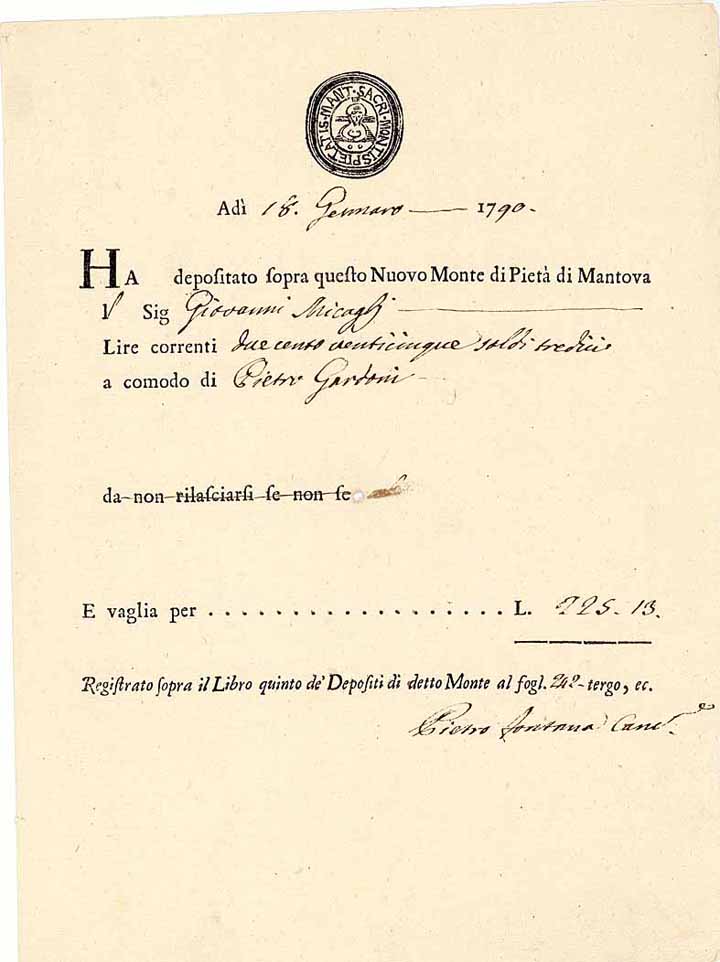 MANT·SACRI·MONTIS·PIETATIS
Adì 18. Gennaro 1790.
HA depoſitato ſopra queſto Nuovo Monte di Pietà di Mantova
Il Sig Giovanni
Lire correnti due cento venticinque ſoldi tredici
a comodo di Pietro Gardoni
da non rilaſciarſi ſe non ſe
E vaglia per . . . . . . . . . . . . . . . . . . . L. 225. 13.
Regiſtrato ſopra il Libro quinto de' Depoſiti di detto Monte al fogl. 242 tergo, ec.
Pietro Fontana Canc.e